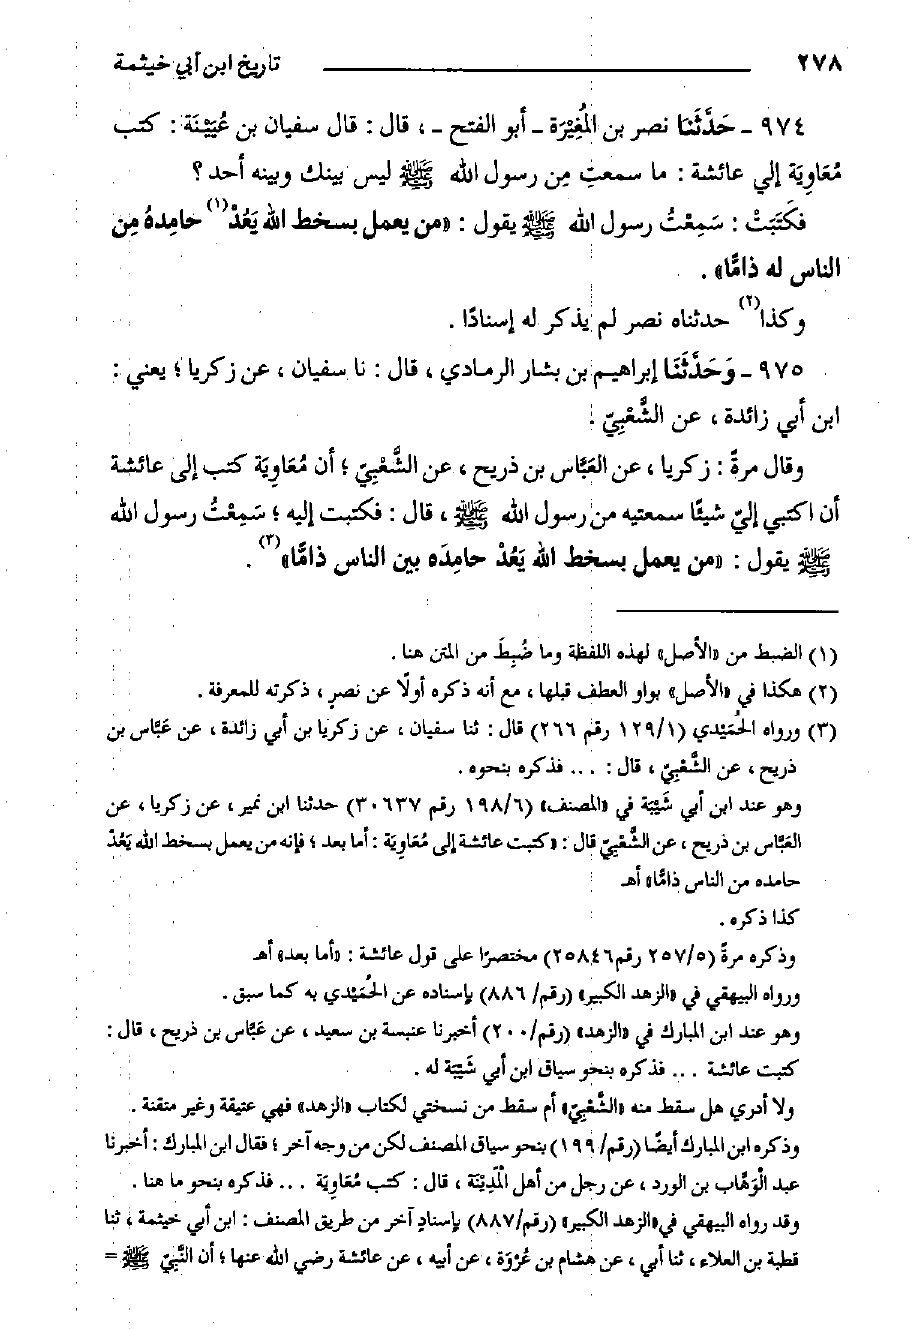 ٢٧٨ تاريخ ابن أبي خيثمة
٩٧٤ ـ حَدَّثَنَا نصر بن المُغِيْرَة ـ أبو الفتح ـ ، قال : قال سفيان بن عُيَيْنَة : كتب
مُعَاوِيَة إلي عائشة : ما سمعتِ مِن رسول الله ﷺ ليس بينك وبينه أحد ؟
فكَتَبَتْ : سَمِعْتُ رسول الله ﷺ يقول : «من يعمل بسخط الله يَعُدْ(١) حامِدهُ مِن
الناس له ذامًّا» .
وكذا(٢) حدثناه نصر لم يذكر له إسنادًا .
٩٧٥ ـ وَحَدَّثَنَا إبراهيم بن بشار الرمادي ، قال : نا سفيان ، عن زكريا ؛ يعني :
ابن أبي زائدة ، عن الشَّعْبِيّ .
وقال مرةً : زكريا ، عن العَبَّاس بن ذريح ، عن الشَّعْبِيّ ؛ أن مُعَاوِيَة كتب إلى عائشة
أن اكتبي إليّ شيئًا سمعتيه من رسول الله ﷺ ، قال : فكتبت إليه ؛ سَمِعْتُ رسول الله
ﷺ يقول : «من يعمل بسخط الله يَعُدْ حامِدَه بين الناس ذامًّا»(٣) .
(١) الضبط من «الأصل» لهذه اللفظة وما ضُبِطَ من المتن هنا .
(٢) هكذا في «الأصل» بواو العطف قبلها ، مع أنه ذكره أولًا عن نصرٍ ، ذكرته للمعرفة .
(٣) ورواه الحُمَيْدي (١/ ١٢٩ رقم ٢٦٦) قال : ثنا سفيان ، عن زكريا بن أبي زائدة ، عن عَبَّاس بن
ذريح ، عن الشَّعْبِيّ ، قال : ... فذكره بنحوه .
وهو عند ابن أبي شَيْبَة في «المصنف» (٦/ ١٩٨ رقم ٣٠٦٣٧) حدثنا ابن نمير ، عن زكريا ، عن
العَبَّاس بن ذريح ، عن الشَّعْبِيّ قال : «كتبت عائشة إلى مُعَاوِيَة : أما بعد ؛ فإنه من يعمل بسخط الله يَعُدْ
حامده من الناس ذامًّا» أهـ
كذا ذكره .
وذكره مرةً (٥/ ٢٥٧ رقم ٢٥٨٤٦) مختصرًا على قول عائشة : «أما بعد» أهـ
ورواه البيهقي في «الزهد الكبير» (رقم/ ٨٨٦) بإسناده عن الحُمَيْدي به كما سبق .
وهو عند ابن المبارك في «الزهد» (رقم/ ٢٠٠) أخبرنا عنبسة بن سعيد ، عن عَبَّاس بن ذريح ، قال :
كتبت عائشة ... فذكره بنحو سياق ابن أبي شَيْبَة له .
ولا أدري هل سقط منه «الشَّعْبِيّ» أم سقط من نسختي لكتاب «الزهد» فهي عتيقة وغير متقنة .
وذكره ابن المبارك أيضًا (رقم/ ١٩٩) بنحو سياق المصنف لكن من وجه آخر ؛ فقال ابن المبارك : أخبرنا
عبد الْوَهَّاب بن الورد ، عن رجل من أهل الْمَدِيْنَة ، قال : كتب مُعَاوِيَة ... فذكره بنحو ما هنا .
وقد رواه البيهقي في «الزهد الكبير» (رقم/ ٨٨٧) بإسنادٍ آخر من طريق المصنف : ابن أبي خيثمة ، ثنا
قطبة بن العلاء ، ثنا أبي ، عن هشام بن عُرْوَة ، عن أبيه ، عن عائشة رضي الله عنها ؛ أن النَّبِيّ ﷺ =